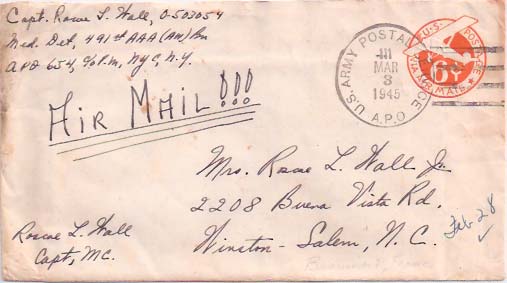 Capt. Roscoe L. Wall, O-503054
Med. Det, 491st AAA (AW) Bn
APO 654, c/o P.M., NYC, N.Y.
AIR MAIL!!!
U.S. ARMY POSTAL SERVICE
MAR
3
1945
A.P.O
U.S. POSTAGE
6¢
VIA AIR MAIL
Mrs. Roscoe L. Wall Jr.
2208 Buena Vista Rd.
Winston-Salem, N.C.
Feb 28
Roscoe L. Wall
Capt, MC.